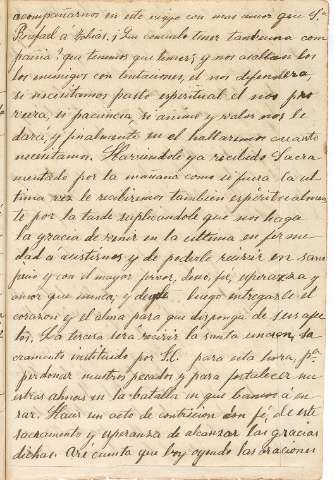 acompañarnos en este viage con mas amor que S.
Rafael a Tobias; ¡Que consuelo tener tan buena com
pañia! que tenemos que temer, y nos asaltan los
los enemigos con tentaciones, el nos defendera,
si necesitamos pasto espiritual el nos pro
veera, si paciencia, si animo y valor nos le
dara y finalmente en el hallaremos cuanto
necesitamos. Haviendole ya recibido Sacra
mentado por la mañana como si fuera la ul
tima vez le recibiremos tambien espiritualmen
te por la tarde suplicandole que nos haga
la gracia de venir en la ultima enferme
dad a asistirnos y de poderle recivir en sano
juicio y con el mayor fervor, devo, fé, esperanza y
amor que nunca, y desde luego entregarle el
corazon y el alma para que disponga de sus afec
tos. La tercera será recivir la santa uncion, sa
cramento instituido por S.C. para esta hora, pª
perdonar nuestros pecados y para fortalecer nu
estras almas en la batalla en que vamos á en
trar. Hacer un acto de contricion con fé, de este
sacramento y esperanza de alcanzar las gracias
dichas. Asi cuenta que hoy oyendo las oraciones